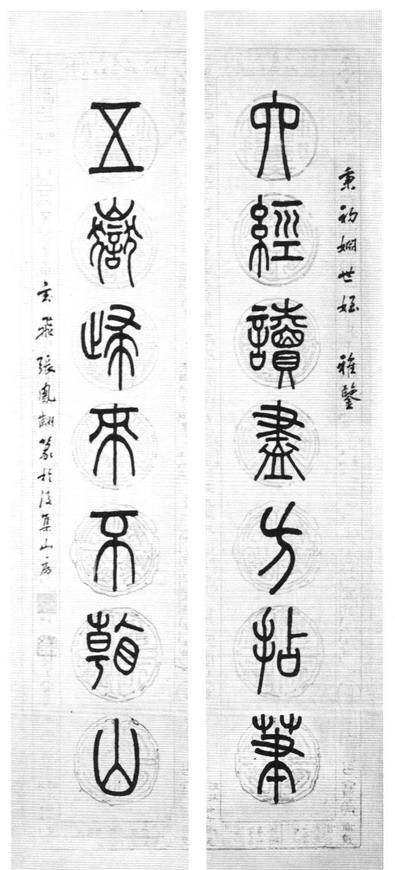 秉初姻世姪 雅鑒
六經讀盡方拈筆
五嶽歸來不看山
張鳳翽篆於 山房